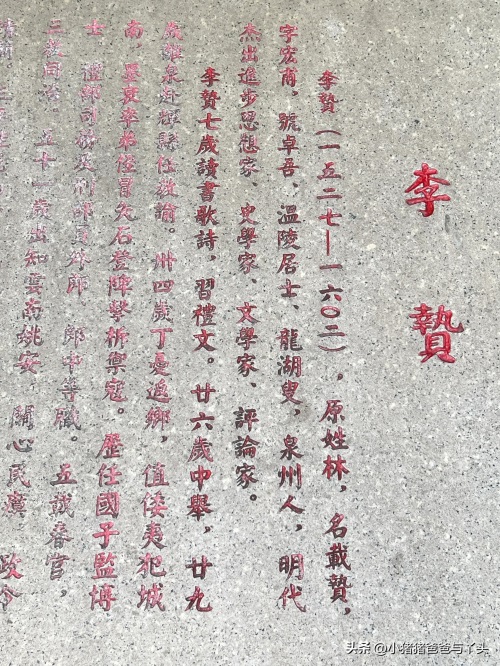 李贄
李贄（一五二七—一六〇二），原姓林，名載贄，
字宏甫，號卓吾、溫陵居士、龍湖叟，泉州人，明代
杰出進步思想家、史學家、文學家、評論家。
李贄七歲讀書歌詩，習禮文。廿六歲中舉，廿九
歲離泉赴輝縣任教諭。卅四歲丁憂返鄉，值倭夷犯城
南，墨衰率弟侄冒矢石登陴擊柝禦寇。歷任國子監博
士、禮部司務及刑部員外郎、郎中等職。五載春官，
五十一歲出知雲南姚安，關心民瘼，政令
头条 @小猪猪爸爸与丫头